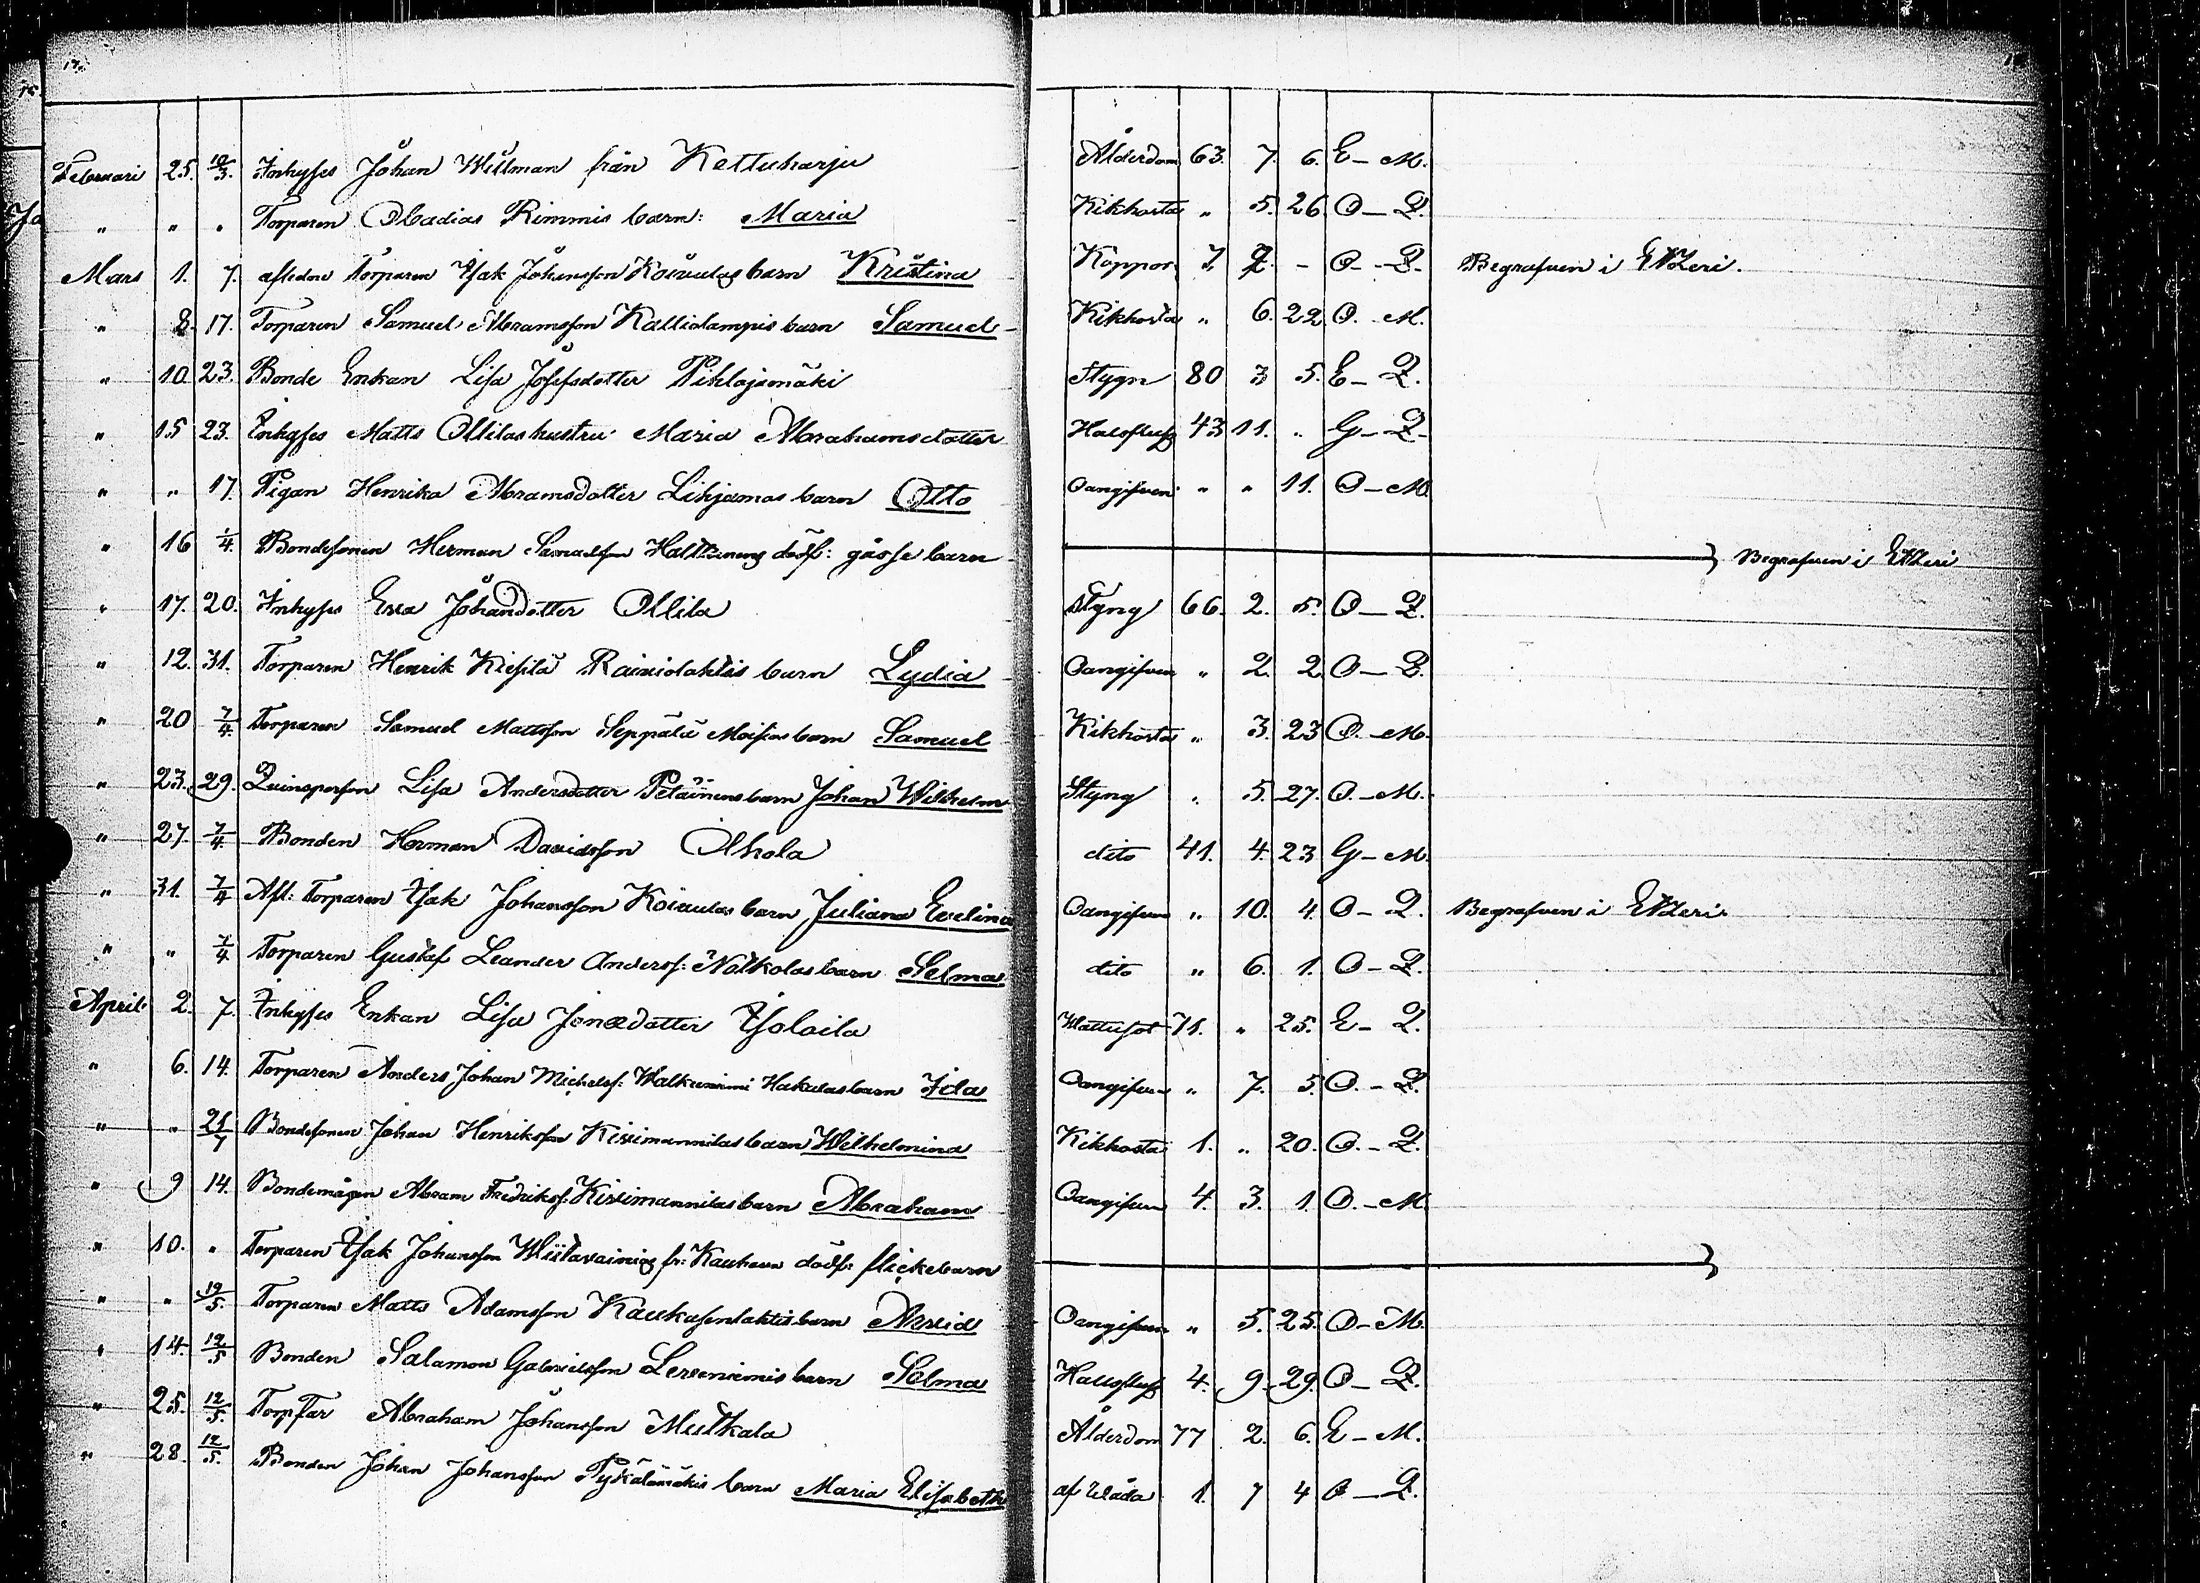 17.
Februari 25. 10/3. Inhyses Johan Willman från Kettuharju Ålderdom 63. 7. 6. E - M.
" " " Torparen Obadias Rimmis barn: Maria Kikhosta " 5. 26. O - Q.
Mars 1. 7. aflidne Torparen Isak Johansson Koivulas barn Kristina Koppor 7. O - Q. Begrafven i Etseri.
" 8. 17. Torparen Samuel Abramsson Kalliolampis barn Samuel Kikhosta " 6. 22. O. - M.
" 10. 23. Bonde Enkan Lisa Josefsdotter Pihlajamäki Stygn 80 3 5. E - Q.
" 15 23. Inhyses Matts Ollilas hustru Maria Abrahamsdotter Halsfluss 43 11. " G - Q.
" " 17. Pigan Henrika Abramsdotter Lihjamas barn Otto Oangifven " " 11. O - M.
" 16 1/4. Bondesonen Herman Samuelsson Halttunens dödf: gosse barn Begrafven i Etseri
" 17. 20. Inhyses Eva Johansdotter Ollila Styng 66. 2. 5. O - Q.
" 12. 31. Torparen Henrik Kiesilä Rainiolahtis barn Lydia Oangifven " 2. 2. O - Q.
" 20 7/4. Torparen Samuel Mattsson Seppälä Moisios barn Samuel Kikhosta " 3. 23 O. - M.
" 23. 29. Qvinsperson Lisa Andersdotter Petäinens barn Johan Wilhelm Styng " 5. 27. O. - M.
" 27. 7/4 Bonden Herman Davidsson Alkola dito 41. 4. 23 G - M.
" 31. 7/4 Afl: Torparen Isak Johansson Koivulas barn Juliana Evelina Oangifven " 10. 4. O - Q. Begrafven i Etseri.
" " 7/4 Torparen Gustaf Leander Andersf: Notkolas barn Selma dito " 6. 1. O - Q.
April 2. 7. Inhyses Enkan Lisa Jonædotter Isolaila Wattusot 71. " 25. E - Q.
" 6. 14. Torparen Anders Johan Michelsf: Walkeeniemi Hakulas barn Ida Oangifven " 7. 5. O. - Q.
" " 21/7 Bondesonen Johan Henriksson Kivimannilas barn Wilhelmina Kikhosta 1. " 20. O. - Q.
" 9 14. Bondemågen Abram Fredriksf: Kivimannilas barn Abraham Oangifven 4. 3. 1. O. - M.
" 10. " Torparen Isak Johansson fr: Kauhava dödf: flickebarn
" " 19/5. Torparen Matts Adamsson Kaukasenlahtis barn Arvid Oangifven " 5. 25. O - M.
" 14. 12/5 Bonden Salamon Gabrielsson Leveniemis barn Selma Halsfluss 4. 9. 29. O - Q.
" 25. 12/5. Torpfar Abraham Johansson Mutkala Ålderdom 77 2. 6. E - M.
" 28. 12/5. Bonden Johan Johansson Pykälämäkis barn Maria Elisabeth af Våda 1. 7 4 O - Q.